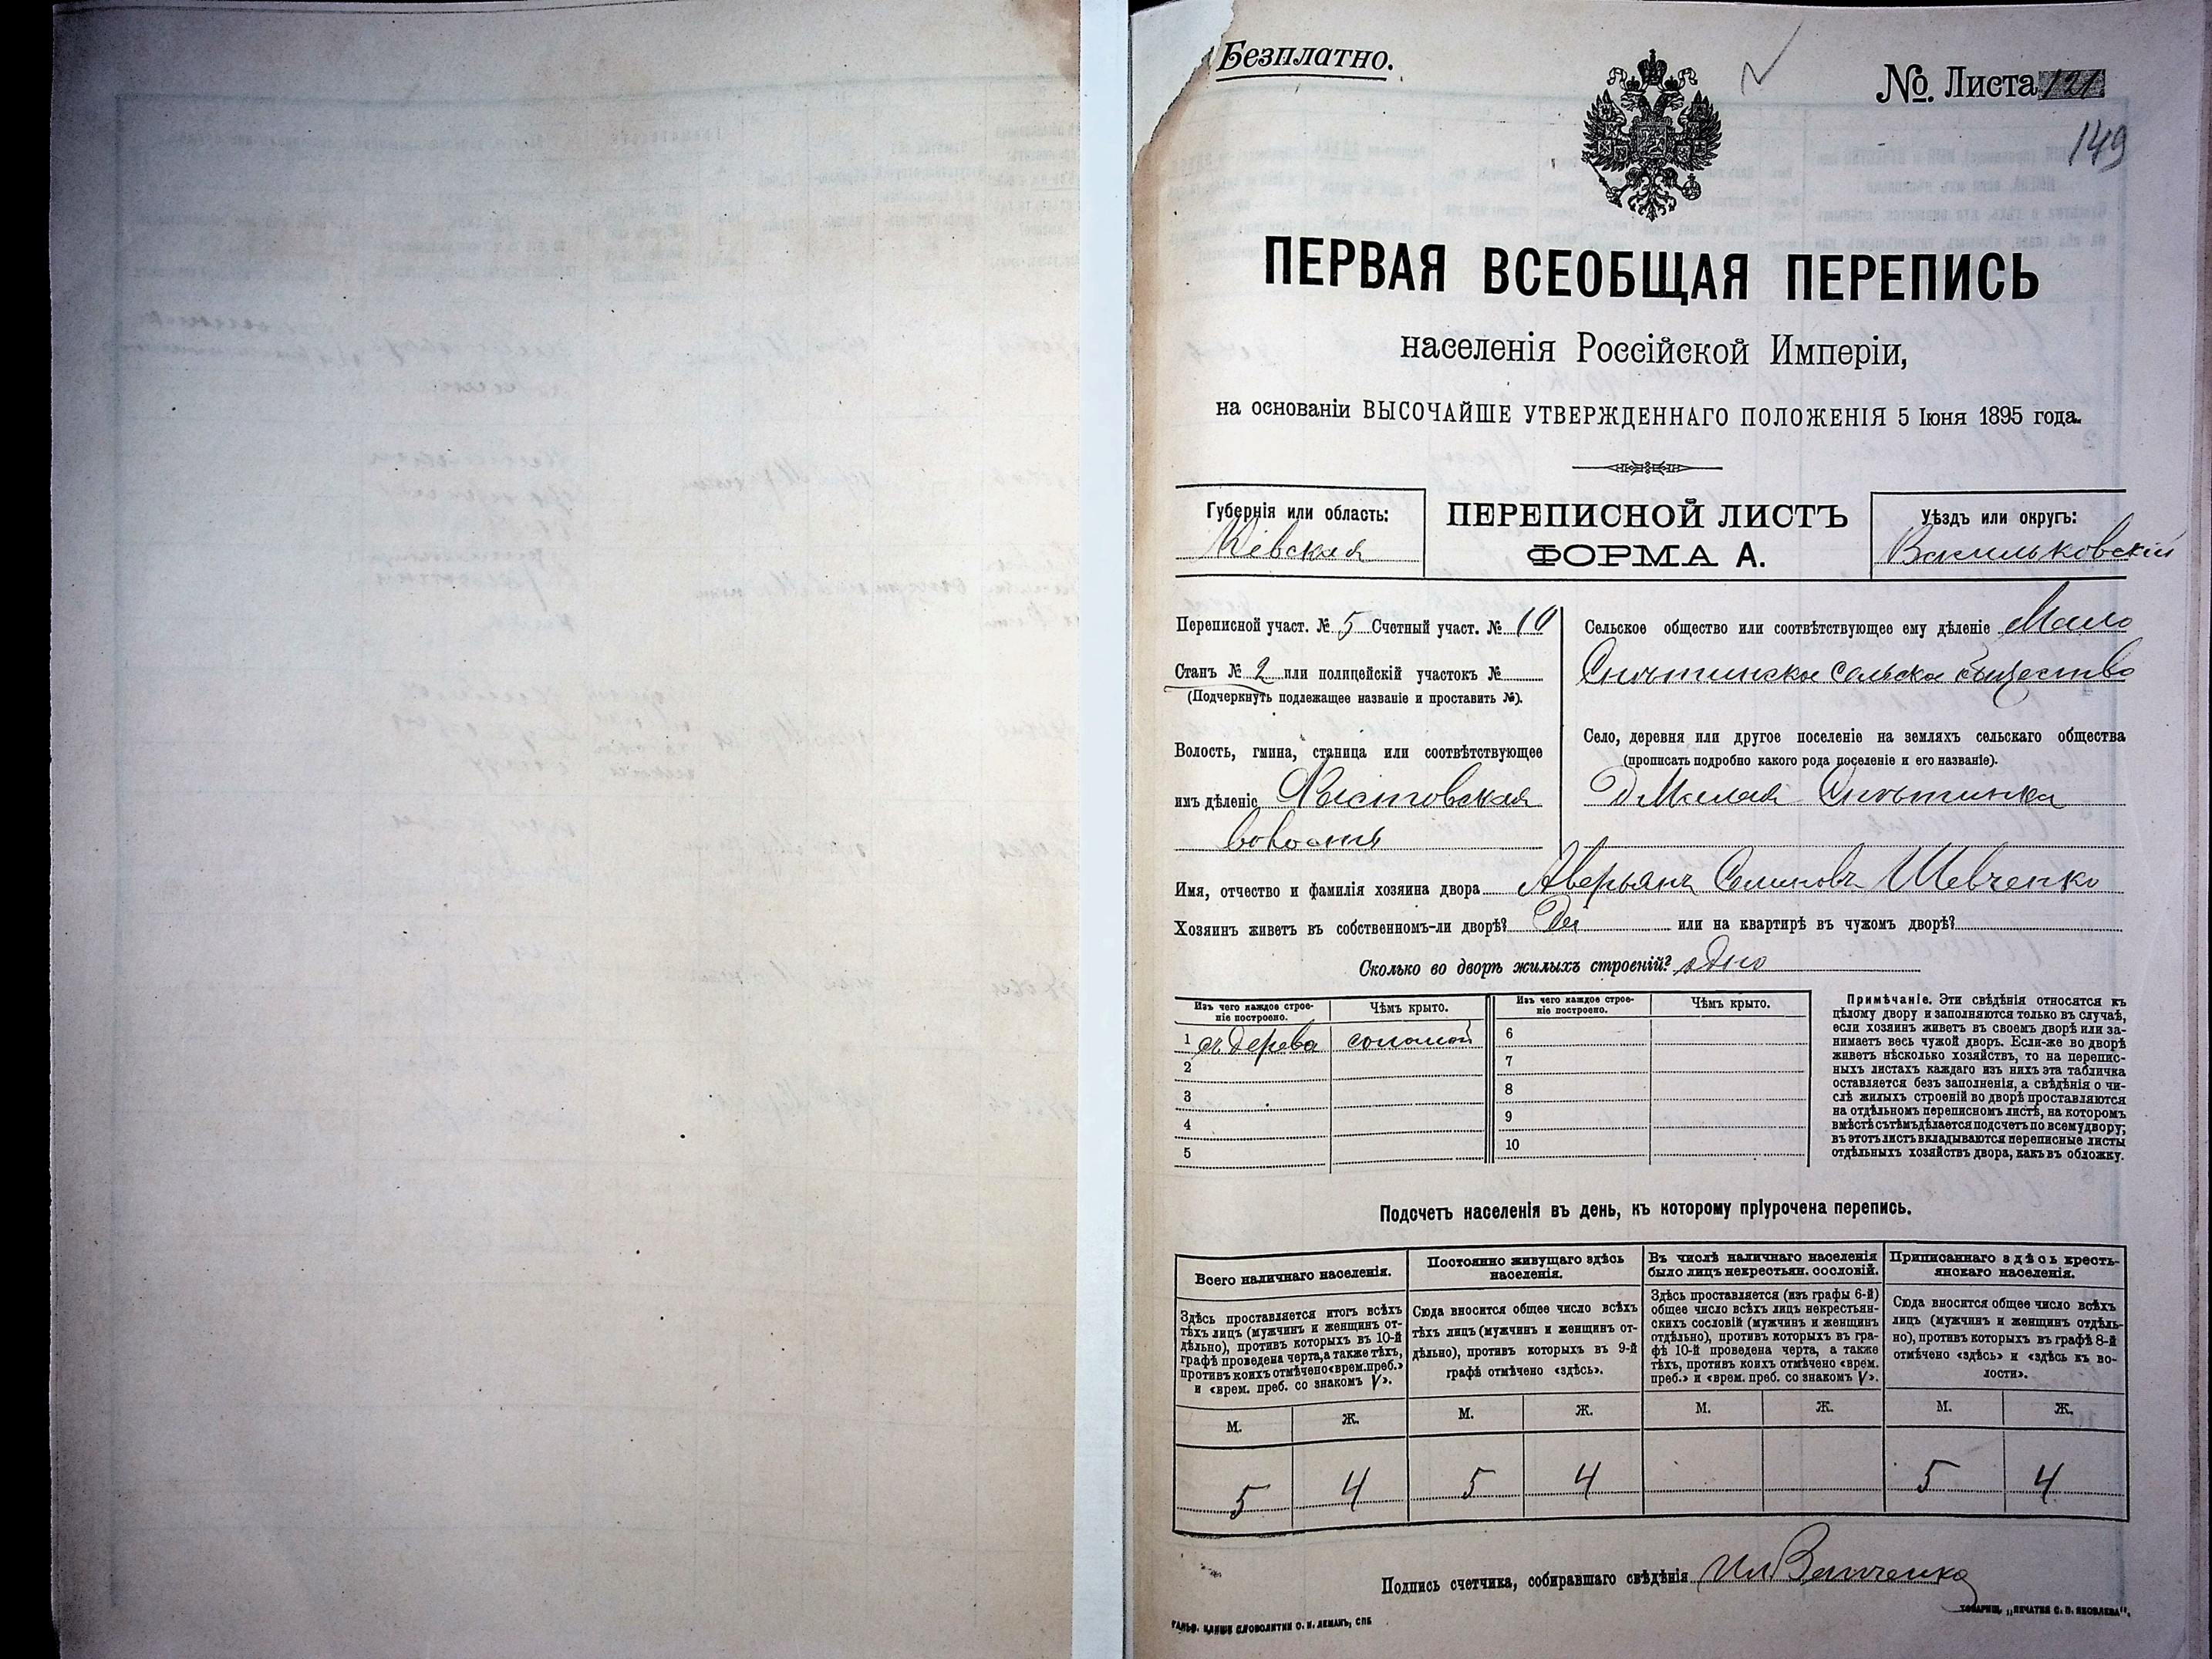 Безплатно.
№ Листа 121
149
ПЕРВАЯ ВСЕОБЩАЯ ПЕРЕПИСЬ
населенія Россійской Имперіи,
на основаніи ВЫСОЧАЙШЕ УТВЕРЖДЕННАГО ПОЛОЖЕНІЯ 5 Іюня 1895 года.
Губернія или область:
Кіевская
ПЕРЕПИСНОЙ ЛИСТЪ
ФОРМА А.
Уѣздъ или округъ:
Васильковскій
Переписной участ. № 5 Счетный участ. № 10
Станъ № 2 или полицейскій участокъ №
(Подчеркнуть подлежащее названіе и проставить №).
Волость, гмина, станица или соотвѣтствующее
имъ дѣленіе
волость
Сельское общество или соотвѣтствующее ему дѣленіе Мало
общество
Село, деревня или другое поселеніе на земляхъ сельскаго общества
(прописать подробно какого рода поселеніе и его названіе).
Д Малая
Имя, отчество и фамилія хозяина двора Аверьянъ Семиновъ Шевченко
Хозяинъ живетъ въ собственномъ-ли дворѣ? Да или на квартирѣ въ чужомъ дворѣ?
Сколько во дворѣ жилыхъ строеній? одно
Изъ чего каждое строе-
ніе построено.
Чѣмъ крыто.
1 съ дерева соломой
2
3
4
5
Изъ чего каждое строе-
ніе построено.
Чѣмъ крыто.
6
7
8
9
10
Примѣчаніе. Эти свѣдѣнія относятся къ
цѣлому двору и заполняются только въ случаѣ,
если хозяинъ живетъ въ своемъ дворѣ или за-
нимаетъ весь чужой дворъ. Если-же во дворѣ
живетъ нѣсколько хозяйствъ, то на перепис-
ныхъ листахъ каждаго изъ нихъ эта табличка
оставляется безъ заполненія, а свѣдѣнія о чи-
слѣ жилыхъ строеній во дворѣ проставляются
на отдѣльномъ переписномъ листѣ, на которомъ
вмѣстѣ съ тѣмъ дѣлается подсчетъ по всему двору;
въ этотъ листъ вкладываются переписные листы
отдѣльныхъ хозяйствъ двора, какъ въ обложку.
Подсчетъ населенія въ день, къ которому пріурочена перепись.
Всего наличнаго населенія.
Здѣсь проставляется итогъ всѣхъ
тѣхъ лицъ (мужчинъ и женщинъ от-
дѣльно), противъ которыхъ въ 10-й
графѣ проведена черта, а также тѣхъ,
противъ коихъ отмѣчено «врем. преб.»
и «врем. преб. со знакомъ V».
М. Ж.
5 4
Постоянно живущаго здѣсь
населенія.
Сюда вносится общее число всѣхъ
тѣхъ лицъ (мужчинъ и женщинъ от-
дѣльно), противъ которыхъ въ 9-й
графѣ отмѣчено «здѣсь».
М. Ж.
5 4
Въ числѣ наличнаго населенія
было лицъ некрестьян. сословій.
Здѣсь проставляется (изъ графы 6-й)
общее число всѣхъ лицъ некрестьян-
скихъ сословій (мужчинъ и женщинъ
отдѣльно), противъ которыхъ въ гра-
фѣ 10-й проведена черта, а также
тѣхъ, противъ коихъ отмѣчено «врем.
преб.» и «врем. преб. со знакомъ V».
М. Ж.
Приписаннаго здѣсь кресть-
янскаго населенія.
Сюда вносится общее число всѣхъ
лицъ (мужчинъ и женщинъ отдѣль-
но), противъ которыхъ въ графѣ 8-й
отмѣчено «здѣсь» и «здѣсь къ во-
лости».
М. Ж.
5 4
Подпись счетчика, собиравшаго свѣдѣнія
СЛОВОЛИТНИ О. И. ЛЕМАНЪ, СПБ
ТОВАРИЩ. „ПЕЧАТНЯ С. П. ЯКОВЛЕВА".